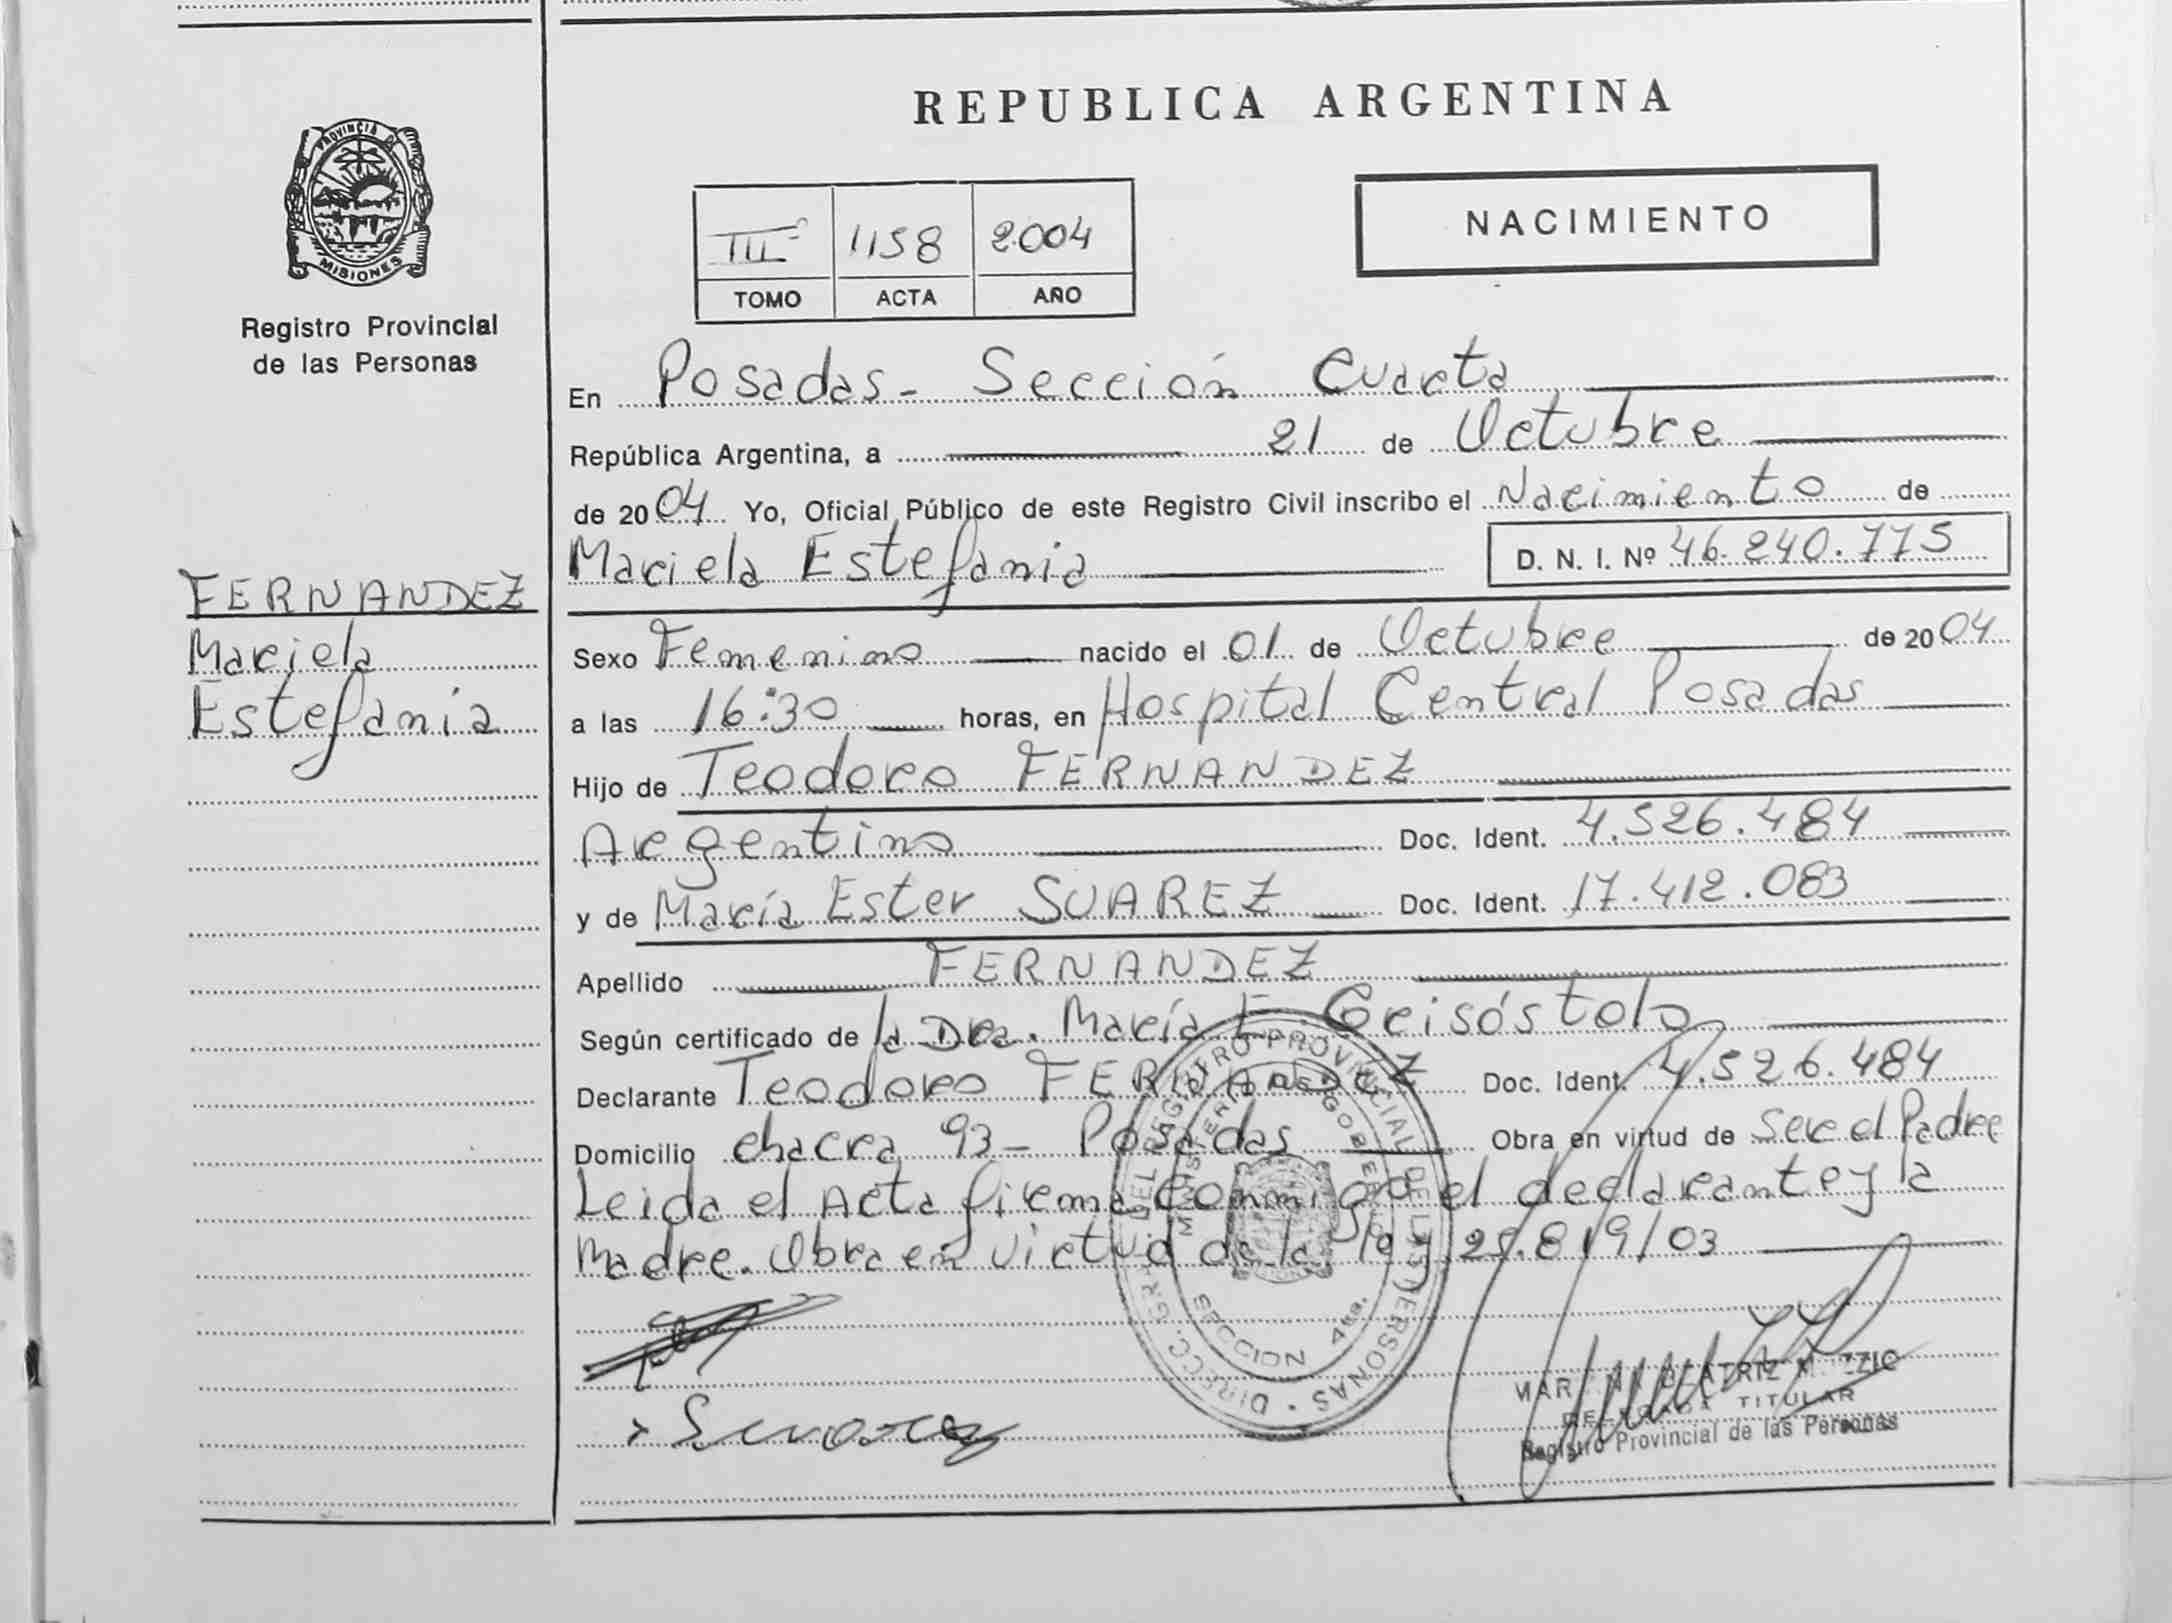 PROVINCIA DE
MISIONES
Registro Provincial
de las Personas
FERNANDEZ
Mariela
Estefania
REPUBLICA ARGENTINA
NACIMIENTO
III° 1158 2004
TOMO ACTA AÑO
En Posadas - Sección Cuarta
República Argentina, a 21 de Octubre
de 2004 Yo, Oficial Público de este Registro Civil inscribo el Nacimiento de
Mariela Estefania D. N. I. Nº 46.240.775
Sexo Femenino nacido el 01 de Octubre de 2004
a las 16:30 horas, en Hospital Central Posadas
Hijo de Teodoro FERNANDEZ
Argentino Doc. Ident. 4.526.484
y de María Ester SUAREZ Doc. Ident. 17.412.083
Apellido FERNANDEZ
Según certificado de la Dra. María E. Crisóstolo
Declarante Teodoro FERNANDEZ Doc. Ident. 4.526.484
Domicilio chacra 93 - Posadas Obra en virtud de Ser el Padre
Leida el Acta firma conmigo el declarante y la
Madre. Obra en virtud de la ley 25.819/03
DIRECC. GRAL. DEL REGISTRO PROVINCIAL DE LAS PERSONAS
MINISTERIO DE GOBIERNO
SECCION 4ta.
BEATRIZ
DELEGADA TITULAR
Registro Provincial de las Personas